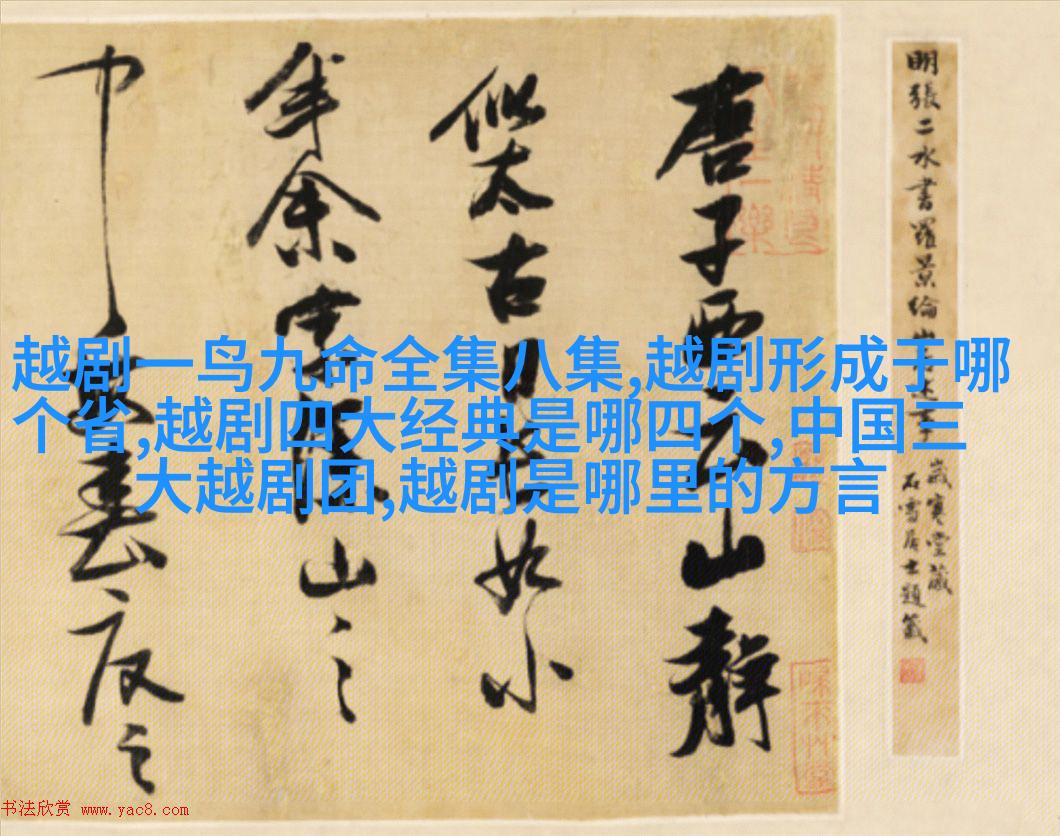 越剧一鸟九命全集八集,越剧形成于哪
个省,越剧四大经典是哪四个,中国三
大越剧团,越剧是哪里的方言
明張二水書羅景綸山
歲寒堂藏
石雪居士題籤
唐子西云山靜
似太古日如小
年余家山之
中春夏之
书法欣赏 www.yac8.com